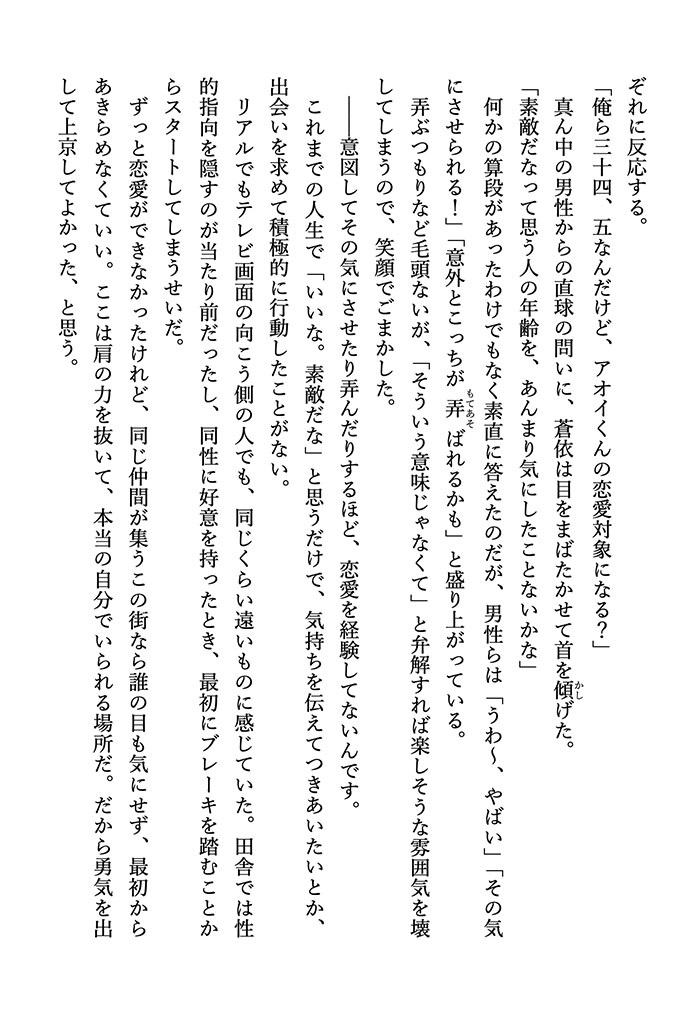 ぞれに反応する。
「俺ら三十四、五なんだけど、アオイくんの恋愛対象になる？」
真ん中の男性からの直球の問いに、蒼依は目をまばたかせて首を傾げた。
「素敵だなって思う人の年齢を、あんまり気にしたことないかな」
何かの算段があったわけでもなく素直に答えたのだが、男性らは「うわ〜、やばい」「その気
にさせられる！」「意外とこっちが弄ばれるかも」と盛り上がっている。
弄ぶつもりなど毛頭ないが、「そういう意味じゃなくて」と弁解すれば楽しそうな雰囲気を壊
してしまうので、笑顔でごまかした。
――意図してその気にさせたり弄んだりするほど、恋愛を経験してないんです。
これまでの人生で「いいな。素敵だな」と思うだけで、気持ちを伝えてつきあいたいとか、
出会いを求めて積極的に行動したことがない。
リアルでもテレビ画面の向こう側の人でも、同じくらい遠いものに感じていた。田舎では性
的指向を隠すのが当たり前だったし、同性に好意を持ったとき、最初にブレーキを踏むことか
らスタートしてしまうせいだ。
ずっと恋愛ができなかったけれど、同じ仲間が集うこの街なら誰の目も気にせず、最初から
あきらめなくていい。ここは肩の力を抜いて、本当の自分でいられる場所だ。だから勇気を出
して上京してよかった、と思う。